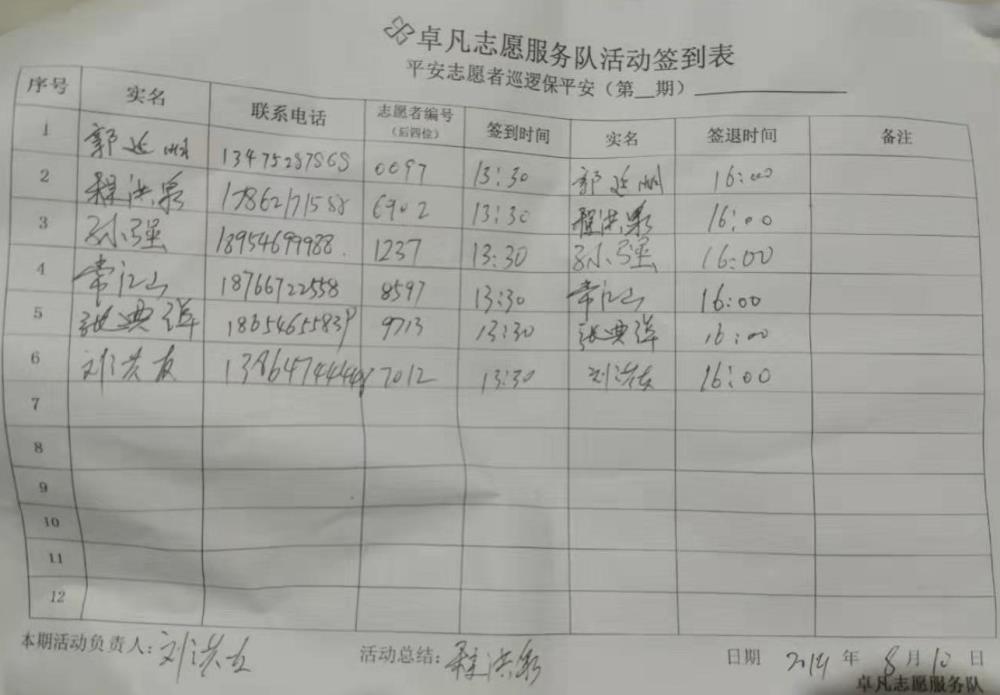 卓凡志愿服务队活动签到表
平安志愿者巡逻保平安（第__期）
序号 实名 联系电话 志愿者编号（后四位） 签到时间 实名 签退时间 备注
1 郭延 13475287868 0097 13:30 郭延 16:00
2 程洪泉 17862171588 6902 13:30 程洪泉 16:00
3 孙强 18954699988 1237 13:30 孙强 16:00
4 常江山 18766722558 8597 13:30 常江山 16:00
5 张典祥 18654655839 9713 13:30 张典祥 16:00
6 刘洪友 7012 13:30 刘洪友 16:00
7
8
9
10
11
12
本期活动负责人：刘洪友 活动总结：程洪泉 日期 2019 年 8 月 10 日
卓凡志愿服务队